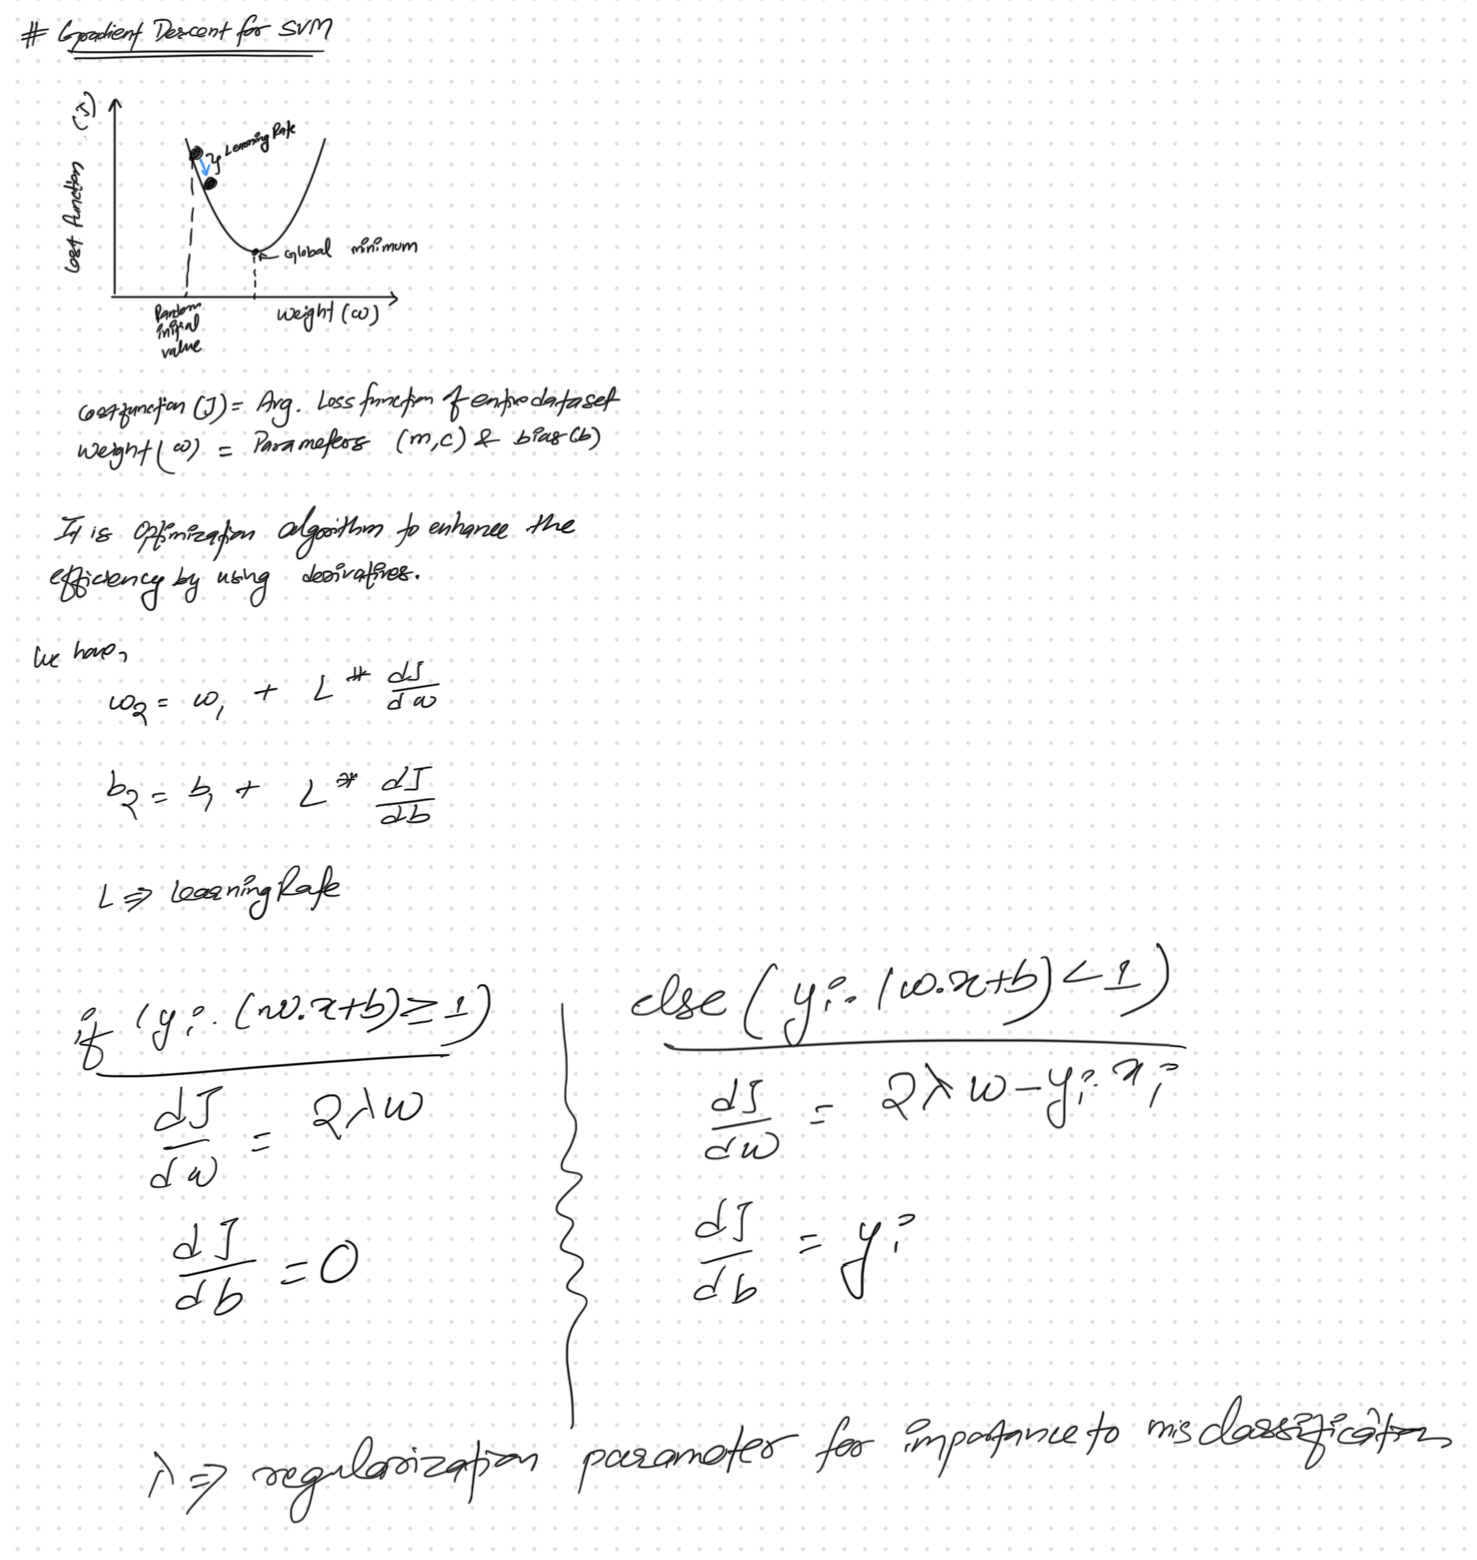 # Gradient Descent for SVM
Cost function (J)
Learning Rate
Global minimum
Random
initial
value
Weight (ω)
Cost function (J) = Avg. Loss function of entire dataset
Weight (ω) = Parameters (m,c) & bias (b)
It is optimization algorithm to enhance the
efficiency by using derivatives.
We have,
ω₂ = ω₁ + L * dJ/dω
b₂ = b₁ + L * dJ/db
L ⇒ Learning Rate
if (yᵢ . (w.x+b) ≥ 1)
dJ/dw = 2λw
dJ/db = 0
else (yᵢ . (w.x+b) < 1)
dJ/dw = 2λw − yᵢ . xᵢ
dJ/db = yᵢ
λ ⇒ regularization parameter for importance to misclassification